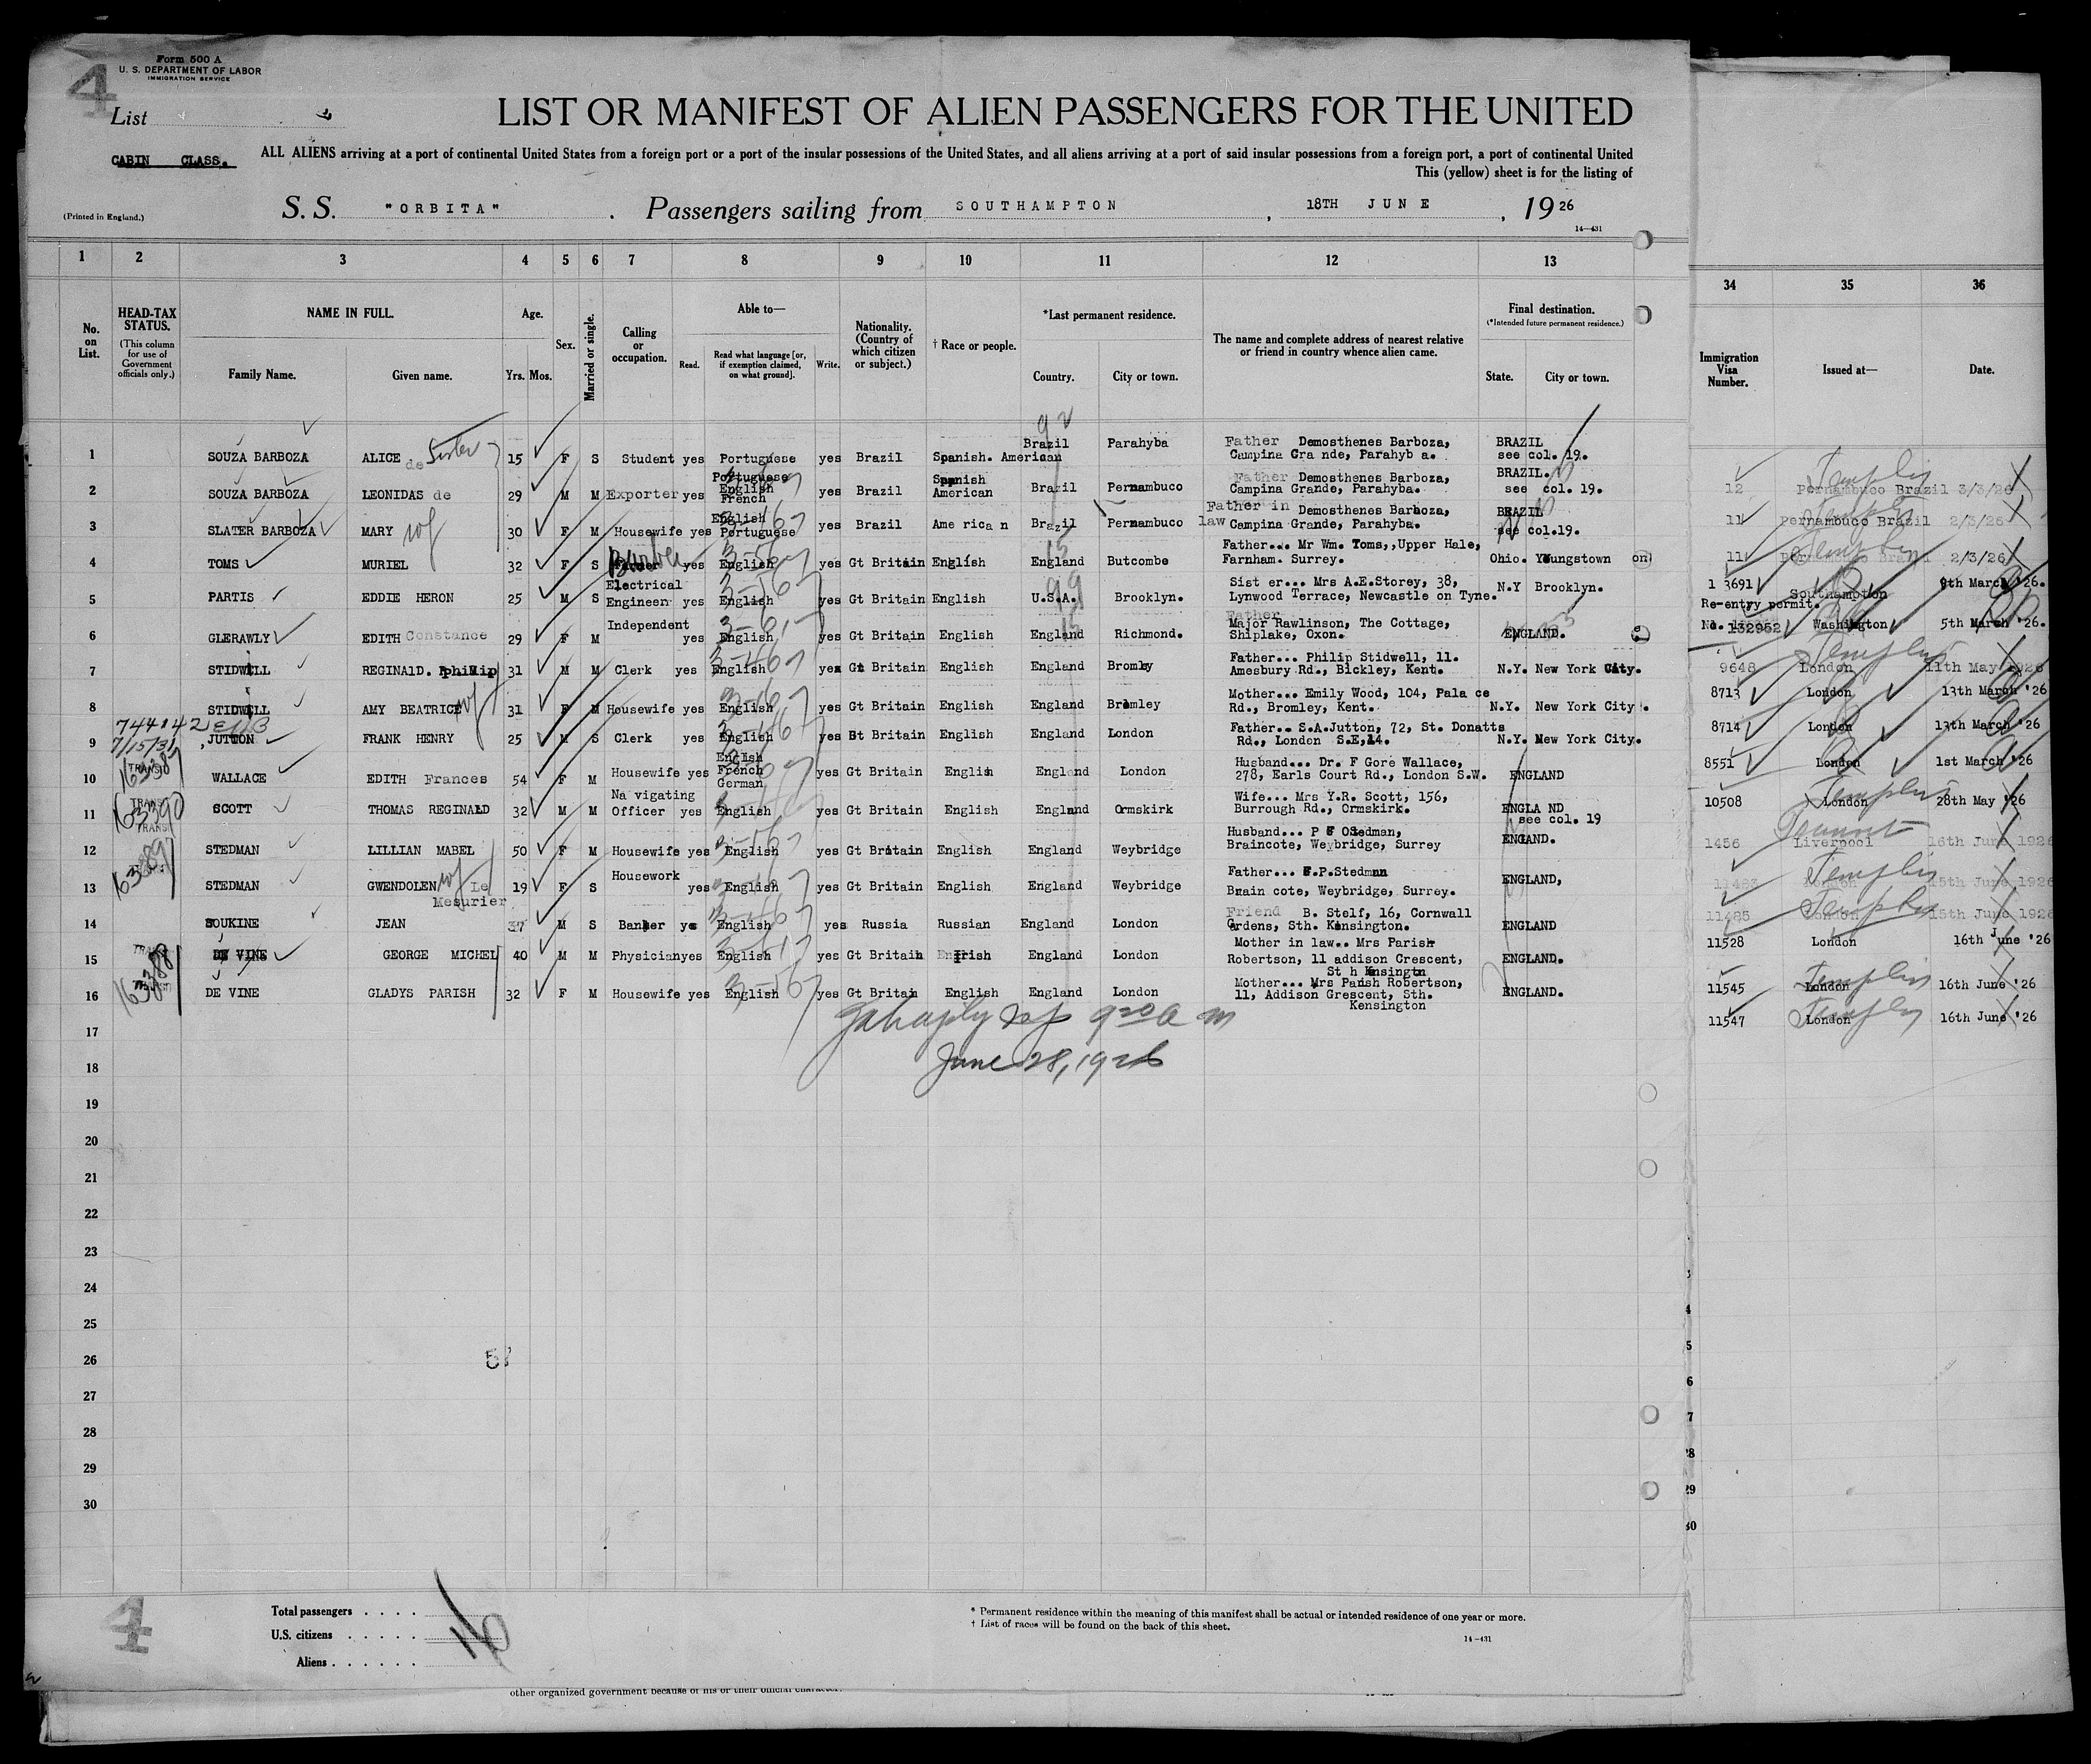 Form 500 A
U. S. DEPARTMENT OF LABOR
IMMIGRATION SERVICE
4
List
CABIN CLASS.
LIST OR MANIFEST OF ALIEN PASSENGERS FOR THE UNITED
ALL ALIENS arriving at a port of continental United States from a foreign port or a port of the insular possessions of the United States, and all aliens arriving at a port of said insular possessions from a foreign port, a port of continental United
This (yellow) sheet is for the listing of
(Printed in England.)
S. S. "ORBITA" . Passengers sailing from SOUTHAMPTON , 18TH JUNE , 19 26
14—431
1 2 3 4 5 6 7 8 9 10 11 12 13 34 35 36
No. on List.
HEAD-TAX STATUS.
(This column for use of Government officials only.)
NAME IN FULL.
Family Name. Given name.
Age.
Yrs. Mos.
Sex.
Married or single.
Calling or occupation.
Able to—
Read. Read what language [or, if exemption claimed, on what ground]. Write.
Nationality. (Country of which citizen or subject.)
† Race or people.
*Last permanent residence.
Country. City or town.
The name and complete address of nearest relative or friend in country whence alien came.
Final destination.
(*Intended future permanent residence.)
State. City or town.
Immigration Visa Number.
Issued at—
Date.
1 SOUZA BARBOZA ALICE de Sister 15 F S Student yes Portuguese yes Brazil Spanish. American Brazil Parahyba Father Demosthenes Barboza, Campina Gra nde, Parahyb a. BRAZIL see col. 19.
2 SOUZA BARBOZA LEONIDAS de 29 M M Exporter yes Portuguese English French yes Brazil Spanish American Brazil Pernambuco Father Demosthenes Barboza, Campina Grande, Parahyba. BRAZIL. see col. 19.
12 Pernambuco Brazil 3/3/26
3 SLATER BARBOZA MARY wf 30 F M Housewife yes English Portuguese yes Brazil Ame rica n Brazil Pernambuco Father in law Demosthenes Barboza, Campina Grande, Parahyba. BRAZIL see col.19.
11 Pernambuco Brazil 2/3/26
4 TOMS MURIEL 32 F S yes English yes Gt Britain English England Butcombe Father... Mr Wm. Toms,,Upper Hale, Farnham. Surrey. Ohio. Youngstown on
11 Pernambuco Brazil 2/3/26
5 PARTIS EDDIE HERON 25 M S Electrical Engineer yes English yes Gt Britain English U.S.A. Brooklyn. Sist er... Mrs A.E.Storey, 38, Lynwood Terrace, Newcastle on Tyne. N.Y Brooklyn.
1 3691 Southampton 9th March '26.
Re-entry permit.
6 GLERAWLY EDITH Constance 29 F M Independent yes English yes Gt Britain English England Richmond. Father Major Rawlinson, The Cottage, Shiplake, Oxon. ENGLAND.
No. 132952 Washington 5th March '26.
7 STIDWELL REGINALD. Philip 31 M M Clerk yes English yes Gt Britain English England Bromley Father... Philip Stidwell, 11. Amesbury Rd., Bickley, Kent. N.Y. New York City.
9648 London 11th May 1926
8 STIDWELL AMY BEATRICE wf 31 F M Housewife yes English yes Gt Britain English England Bromley Mother... Emily Wood, 104, Pala ce Rd., Bromley, Kent. N.Y. New York City.
8713 London 13th March '26
744142
7/15/31
9 JUTTON FRANK HENRY 25 M S Clerk yes English yes Gt Britain English England London Father... S.A.Jutton, 72, St. Donatts Rd., London S.E,14. N.Y. New York City.
8714 London 13th March '26
10 TRANSIT 163387 WALLACE EDITH Frances 54 F M Housewife yes English French German yes Gt Britain English England London Husband... Dr. F Gore Wallace, 278, Earls Court Rd., London S.W. ENGLAND
8551 London 1st March '26
11 TRANSIT 163390 SCOTT THOMAS REGINALD 32 M M Na vigating Officer yes English yes Gt Britain English England Ormskirk Wife... Mrs Y.R. Scott, 156, Burrough Rd., Ormskirk. ENGLA ND see col. 19
10508 London 28th May '26
12 TRANSIT STEDMAN LILLIAN MABEL 50 F M Housewife yes English yes Gt Britain English England Weybridge Husband... P F Stedman, Braincote, Weybridge, Surrey ENGLAND.
1456 Liverpool 16th June 1926
13 16389 STEDMAN GWENDOLEN Le Mesurier 19 F S Housework yes English yes Gt Britain English England Weybridge Father... F.P.Stedman Brain cote, Weybridge, Surrey. ENGLAND,
London 15th June 1926
14 SOUKINE JEAN 37 M S Banker yes English yes Russia Russian England London Friend B. Stelf, 16, Cornwall Gardens, Sth. Kinsington. ENGLAND
11485 London 15th June 1926
15 DE VINE GEORGE MICHEL 40 M M Physician yes English yes Gt Britain Irish England London Mother in law.. Mrs Parish Robertson, 11 addison Crescent, St h Kensingtn ENGLAND.
11528 London 16th June '26
16 16388 DE VINE GLADYS PARISH 32 F M Housewife yes English yes Gt Britain English England London Mother... Mrs Parish Robertson, 11, Addison Crescent, Sth. Kensington ENGLAND.
11545 London 16th June '26
17
11547 London 16th June '26
June 28, 1926
18
19
20
21
22
23
24
25
26
27
28
29
30
Total passengers . . . .
U.S. citizens . . . . .
Aliens . . . . . .
16
4
* Permanent residence within the meaning of this manifest shall be actual or intended residence of one year or more.
† List of races will be found on the back of this sheet.
14—431
other organized government because of his or their official character.